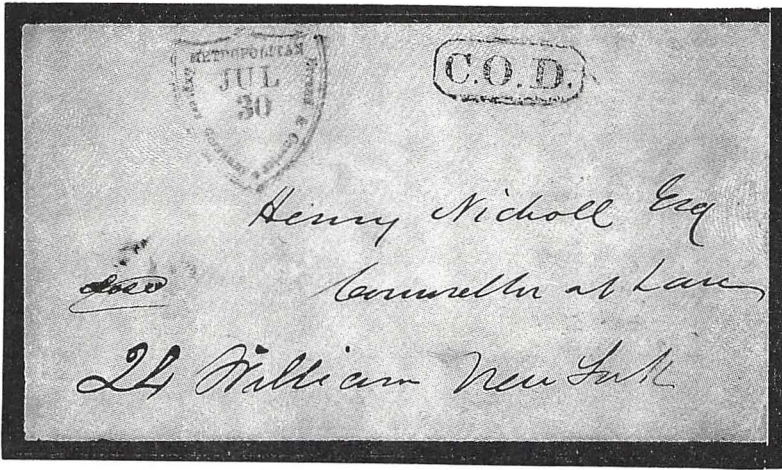 METROPOLITAN
JUL
30
C.O.D.
Henry Nicholl Esq
Counsellor at Law
24 William New York